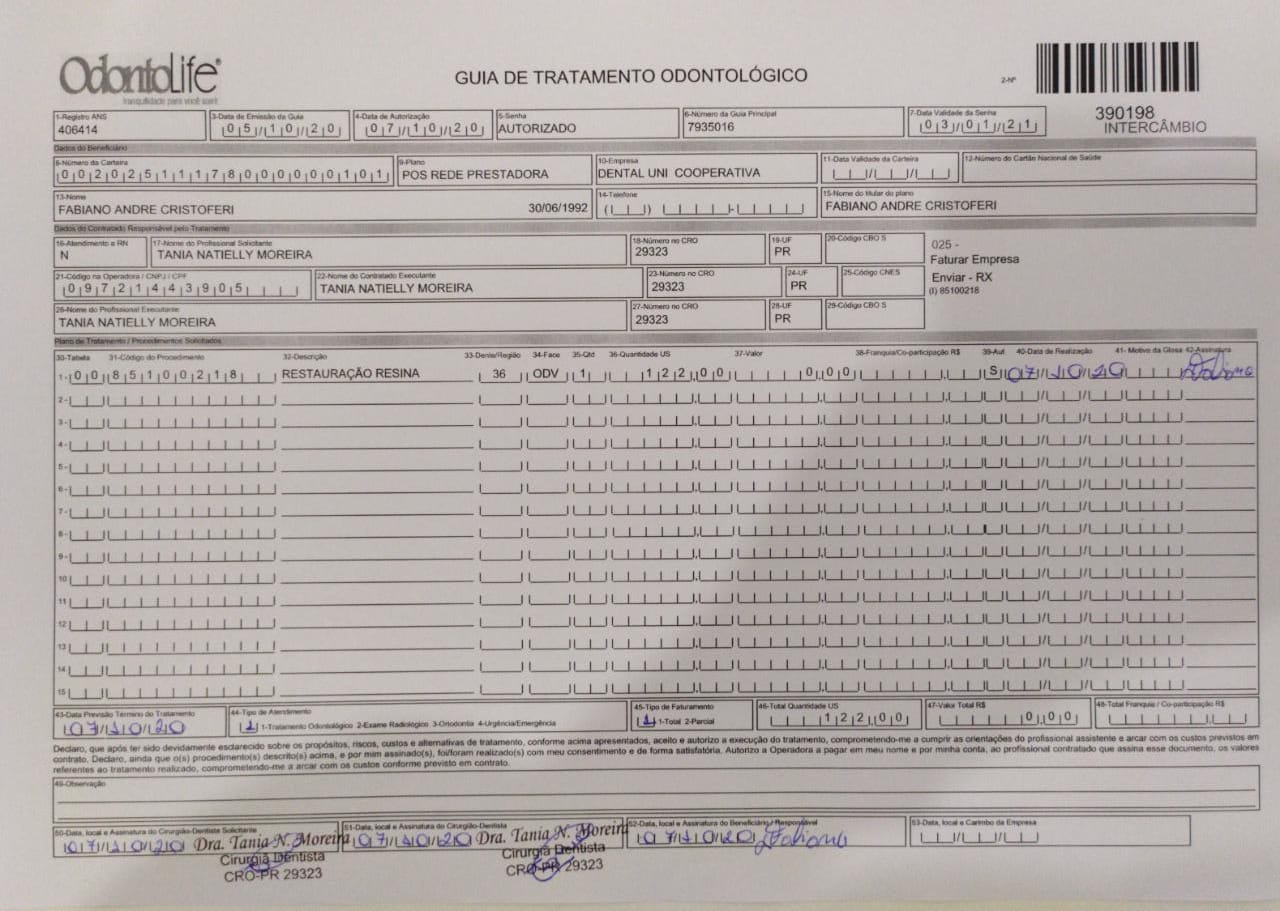 OdontoLife®
tranquilidade para você sorrir
GUIA DE TRATAMENTO ODONTOLÓGICO
2-Nº
390198
INTERCÂMBIO
1-Registro ANS
406414
3-Data de Emissão da Guia
05/10/20
4-Data de Autorização
07/10/20
5-Senha
AUTORIZADO
6-Número da Guia Principal
7935016
7-Data Validade da Senha
03/01/21
Dados do Beneficiário
8-Número da Carteira
00202511178000000101
9-Plano
POS REDE PRESTADORA
10-Empresa
DENTAL UNI COOPERATIVA
11-Data Validade da Carteira
12-Número do Cartão Nacional de Saúde
13-Nome
FABIANO ANDRE CRISTOFERI 30/06/1992
14-Telefone
15-Nome do titular do plano
FABIANO ANDRE CRISTOFERI
Dados do Contratado Responsável pelo Tratamento
16-Atendimento a RN
N
17-Nome do Profissional Solicitante
TANIA NATIELLY MOREIRA
18-Número no CRO
29323
19-UF
PR
20-Código CBO S
025 -
Faturar Empresa
Enviar - RX
(I) 85100218
21-Código na Operadora / CNPJ / CPF
09721443905
22-Nome do Contratado Executante
TANIA NATIELLY MOREIRA
23-Número no CRO
29323
24-UF
PR
25-Código CNES
26-Nome do Profissional Executante
TANIA NATIELLY MOREIRA
27-Número no CRO
29323
28-UF
PR
29-Código CBO S
Plano de Tratamento / Procedimentos Solicitados
30-Tabela 31-Código do Procedimento 32-Descrição 33-Dente/Região 34-Face 35-Qtd 36-Quantidade US 37-Valor 38-Franquia/Co-participação R$ 39-Aut 40-Data de Realização 41- Motivo da Glosa 42-Assinatura
1- 00 85100218 RESTAURAÇÃO RESINA 36 ODV 1 122,00 0,00 S 07/10/20
2-
3-
4-
5-
6-
7-
8-
9-
10
11
12
13
14
15
43-Data Previsão Término do Tratamento
07/10/20
44-Tipo de Atendimento
1 1-Tratamento Odontológico 2-Exame Radiológico 3-Ortodontia 4-Urgência/Emergência
45-Tipo de Faturamento
1 1-Total 2-Parcial
46-Total Quantidade US
122,00
47-Valor Total R$
0,00
48-Total Franquia / Co-participação R$
Declaro, que após ter sido devidamente esclarecido sobre os propósitos, riscos, custos e alternativas de tratamento, conforme acima apresentados, aceito e autorizo a execução do tratamento, comprometendo-me a cumprir as orientações do profissional assistente e arcar com os custos previstos em
contrato. Declaro, ainda que o(s) procedimento(s) descrito(s) acima, e por mim assinado(s), foi/foram realizado(s) com meu consentimento e de forma satisfatória. Autorizo a Operadora a pagar em meu nome e por minha conta, ao profissional contratado que assina esse documento, os valores
referentes ao tratamento realizado, comprometendo-me a arcar com os custos conforme previsto em contrato.
49-Observação
50-Data, local e Assinatura do Cirurgião-Dentista Solicitante
07/10/20 Dra. Tania N. Moreira
Cirurgiã Dentista
CRO-PR 29323
51-Data, local e Assinatura do Cirurgião-Dentista
07/10/20 Dra. Tania N. Moreira
Cirurgiã Dentista
CRO-PR 29323
52-Data, local e Assinatura do Beneficiário / Responsável
07/10/20
53-Data, local e Carimbo da Empresa